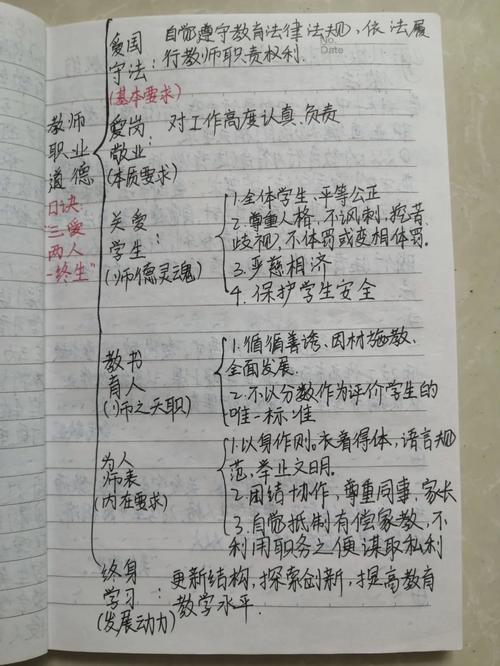 教师
职业
道德
口诀
"三爱
两人
一终生"
爱国
守法：
(基本要求)
自觉遵守教育法律法规，依法履
行教师职责权利.
No.
Date
爱岗
敬业：
(本质要求)
对工作高度认真、负责
关爱
学生：
(师德灵魂)
1.全体学生、平等公正
2.尊重人格，不讽刺，挖苦
歧视，不体罚或变相体罚。
3.严慈相济
4.保护学生安全
教书
育人：
(师之天职)
1.循循善诱、因材施教、
全面发展.
2.不以分数作为评价学生的
唯一标准
为人
师表
(内在要求)
1.以身作则。衣着得体，语言规
范，举止文明.
2.团结协作，尊重同事、家长
3.自觉抵制有偿家教，不
利用职务之便谋取私利
终身
学习：
(发展动力)
更新结构，探索创新，提高教育
教学水平.